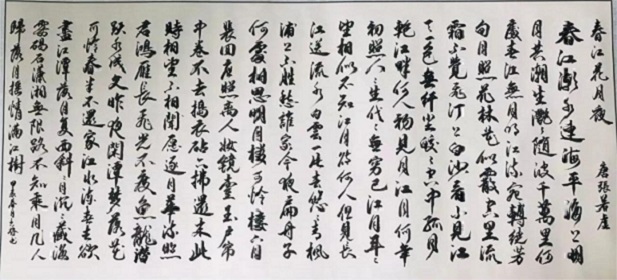 春江花月夜 唐張若虛
春江潮水連海平海上明
月共潮生灩灩隨波千萬里何
處春江無月明江流宛轉繞芳
甸月照花林皆似霰空里流
霜不覺飛汀上白沙看不見江
天一色無纖塵皎皎空中孤月
輪江畔何人初見月江月何年
初照人人生代代無窮已江月年年
望相似不知江月待何人但見長
江送流水白雲一片去悠悠青楓
浦上不勝愁誰家今夜扁舟子
何處相思明月樓可憐樓上月
裴回應照離人妝鏡臺玉戶簾
中卷不去搗衣砧上拂還來此
時相望不相聞願逐月華流照
君鴻雁長飛光不度魚龍潛
躍水成文昨夜閑潭夢落花
可憐春半不還家江水流春去欲
盡江潭落月復西斜斜月沉沉藏海
霧碣石瀟湘無限路不知乘月幾人
歸落月搖情滿江樹